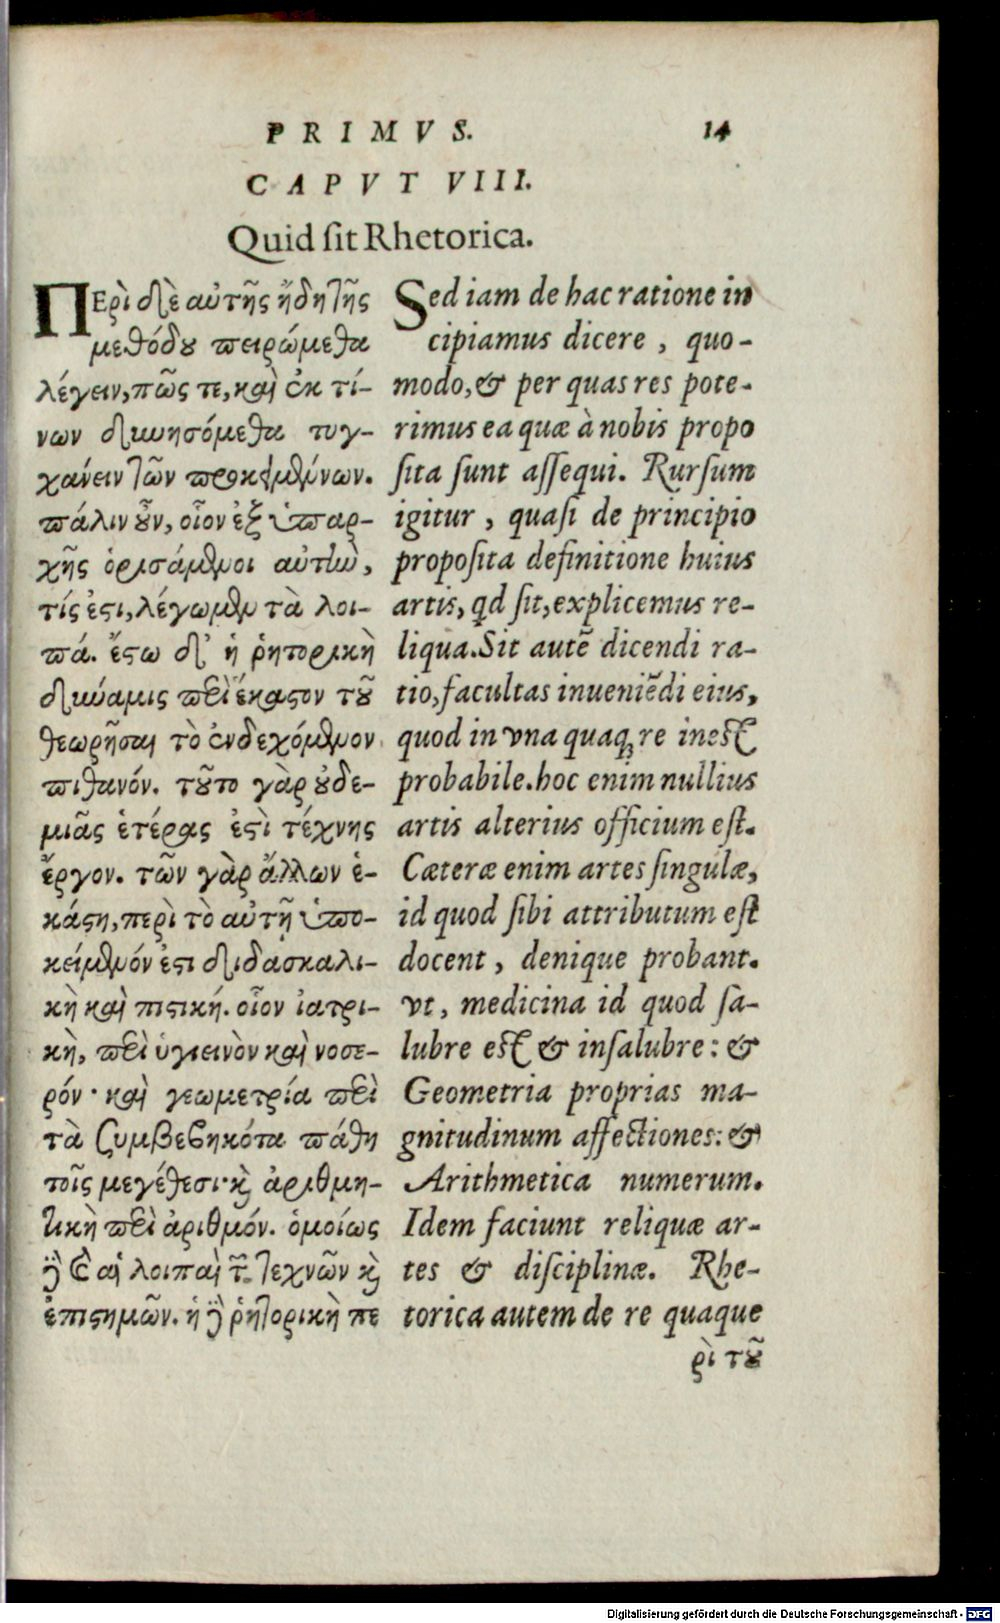 PRIMVS. 14
CAPVT VIII.
Quid ſit Rhetorica.
ΠΕρὶ δὲ αὐτῆς ἤδη τῆς
μεθόδȣ πειρώμεθα
λέγειν, πῶς τε, καὶ ἐκ τί-
νων δυνησόμεθα τυγ-
χάνειν τῶν προκειμένων.
πάλιν ȣ̓͂ν, οἷον ἐξ ὑπαρ-
χῆς ὁρισάμενοι αὐτὴν,
τίς ἐϛι, λέγωμεν τὰ λοι-
πά. ἔϛω δ’ ἡ ῥητορικὴ
δύναμις περὶ ἕκαϛον τȣ͂
θεωρῆσαι τὸ ἐνδεχόμενον
πιθανόν. τȣ͂το γὰρ ȣ̓δε-
μιᾶς ἑτέρας ἐϛὶ τέχνης
ἔργον. τῶν γὰρ ἄλλων ἑ-
κάϛη, περὶ τὸ αὐτῇ ὑπο-
κείμενόν ἐϛι διδασκαλι-
κὴ καὶ πιϛική. οἷον ἰατρι-
κὴ, περὶ ὑγιεινὸν καὶ νοσε-
ρόν· καὶ γεωμετρία περὶ
τὰ ζυμβεβηκότα πάθη
τοῖς μεγέθεσι· ϗ̀ ἀριθμη-
τικὴ περὶ ἀριθμόν. ὁμοίως
δὲ ϗ̀ αἱ λοιπαὶ τῶν τεχνῶν ϗ̀
ἐπιϛημῶν. ἡ δὲ ῥητορικὴ πε
Sed iam de hac ratione in
cipiamus dicere , quo-
modo, & per quas res pote-
rimus ea quæ à nobis propo
ſita ſunt aſſequi. Rurſum
igitur , quaſi de principio
propoſita definitione huius
artis, qd ſit, explicemus re-
liqua. Sit autẽ dicendi ra-
tio, facultas inueniẽdi eius,
quod in vna quaqꝫ re ineſt
probabile. hoc enim nullius
artis alterius officium eſt.
Cæteræ enim artes ſingulæ,
id quod ſibi attributum eſt
docent , denique probant.
vt, medicina id quod ſa-
lubre eſt & inſalubre : &
Geometria proprias ma-
gnitudinum affectiones: &
Arithmetica numerum.
Idem faciunt reliquæ ar-
tes & diſciplinæ. Rhe-
torica autem de re quaque
ρὶ τȣ͂
Digitalisierung gefördert durch die Deutsche Forschungsgemeinschaft - DFG